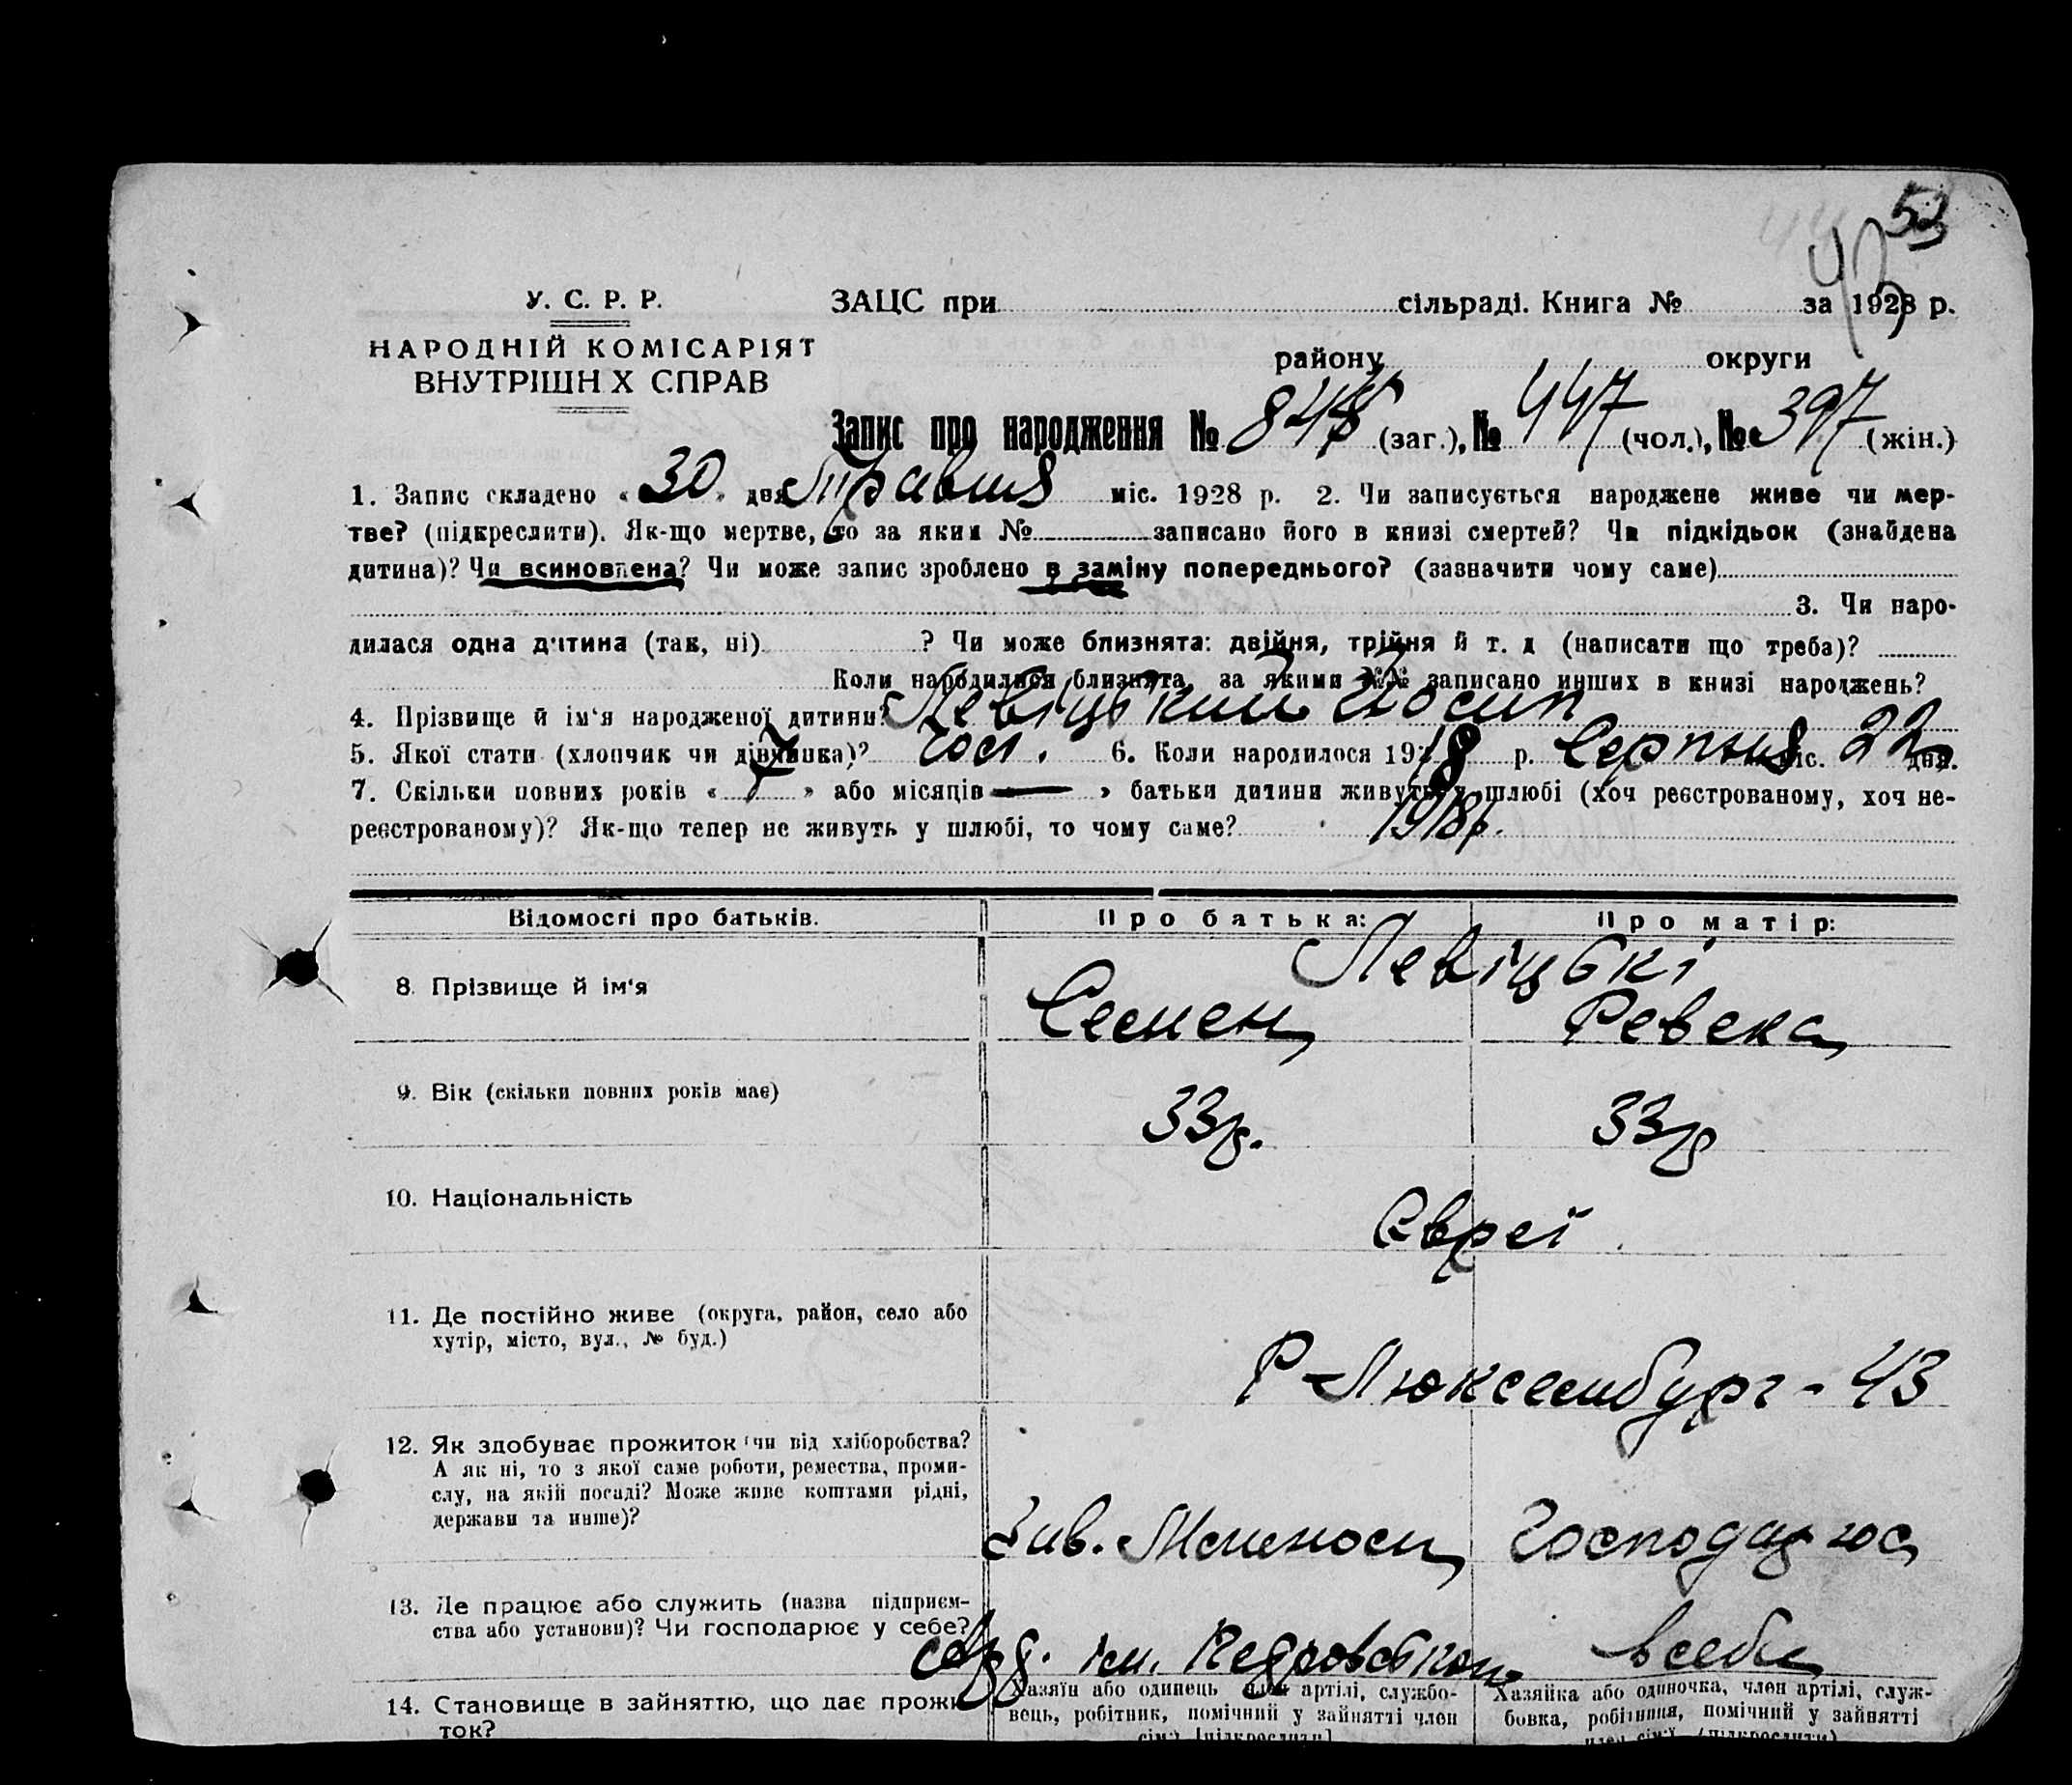 53
43
У. С. Р. Р.
ЗАЦС при сільраді. Книга № за 1928 р.
НАРОДНІЙ КОМІСАРІЯТ
ВНУТРІШН Х СПРАВ
району округи
Запис про народження № 848 (заг.), № 447 (чол.), № 397 (жін.)
1. Запис складено « 30 » дня Травня міс. 1928 р. 2. Чи записується народжене живе чи мер-
тве? (підкреслити). Як-що мертве, то за яким № записано його в книзі смертей? Чи підкідьок (знайдена
дитина)? Чи всиновлена? Чи може запис зроблено в заміну попереднього? (зазначити чому саме)
3. Чи наро-
дилася одна дитина (так, ні) ? Чи може близнята: двійня, трійня й т. д (написати що треба)?
Коли народилися близнята, за якими №№ записано инших в книзі народжень?
4. Прізвище й ім'я народженої дитини? Левіцький Йосип
5. Якої стати (хлопчик чи дівчинка)? чол. 6. Коли народилося 1918 р. Серпня міс. 22 дня.
7. Скільки повних років « » або місяців — » батьки дитини живуть у шлюбі (хоч реєстрованому, хоч не-
реєстрованому)? Як-що тепер не живуть у шлюбі, то чому саме? 1918р.
Відомості про батьків. Про батька: Про матір:
Левіцькі
8. Прізвище й ім'я Семен Ревека
9. Вік (скільки повних років має) 33р. 33р
10. Національність Євреї
11. Де постійно живе (округа, район, село або
хутір, місто, вул., № буд.)
Р-Люксембург - 43
12. Як здобуває прожиток (чи від хліборобства?
А як ні, то з якої саме роботи, ремества, проми-
слу, на якій посаді? Може живе коштами рідні,
держави та инше)?
Господарює
13. Де працює або служить (назва підприєм-
ства або установи)? Чи господарює у себе?
ім. всебе
14. Становище в зайняттю, що дає прожи-
ток?
Хазяїн або одинець член артілі, службо-
вець, робітник, помічний у зайнятті член
сім'ї [підкреслити]
Хазяйка або одиночка, член артілі, служ-
бовка, робітниця, помічний у зайнятті
член сім'ї (підкреслити)